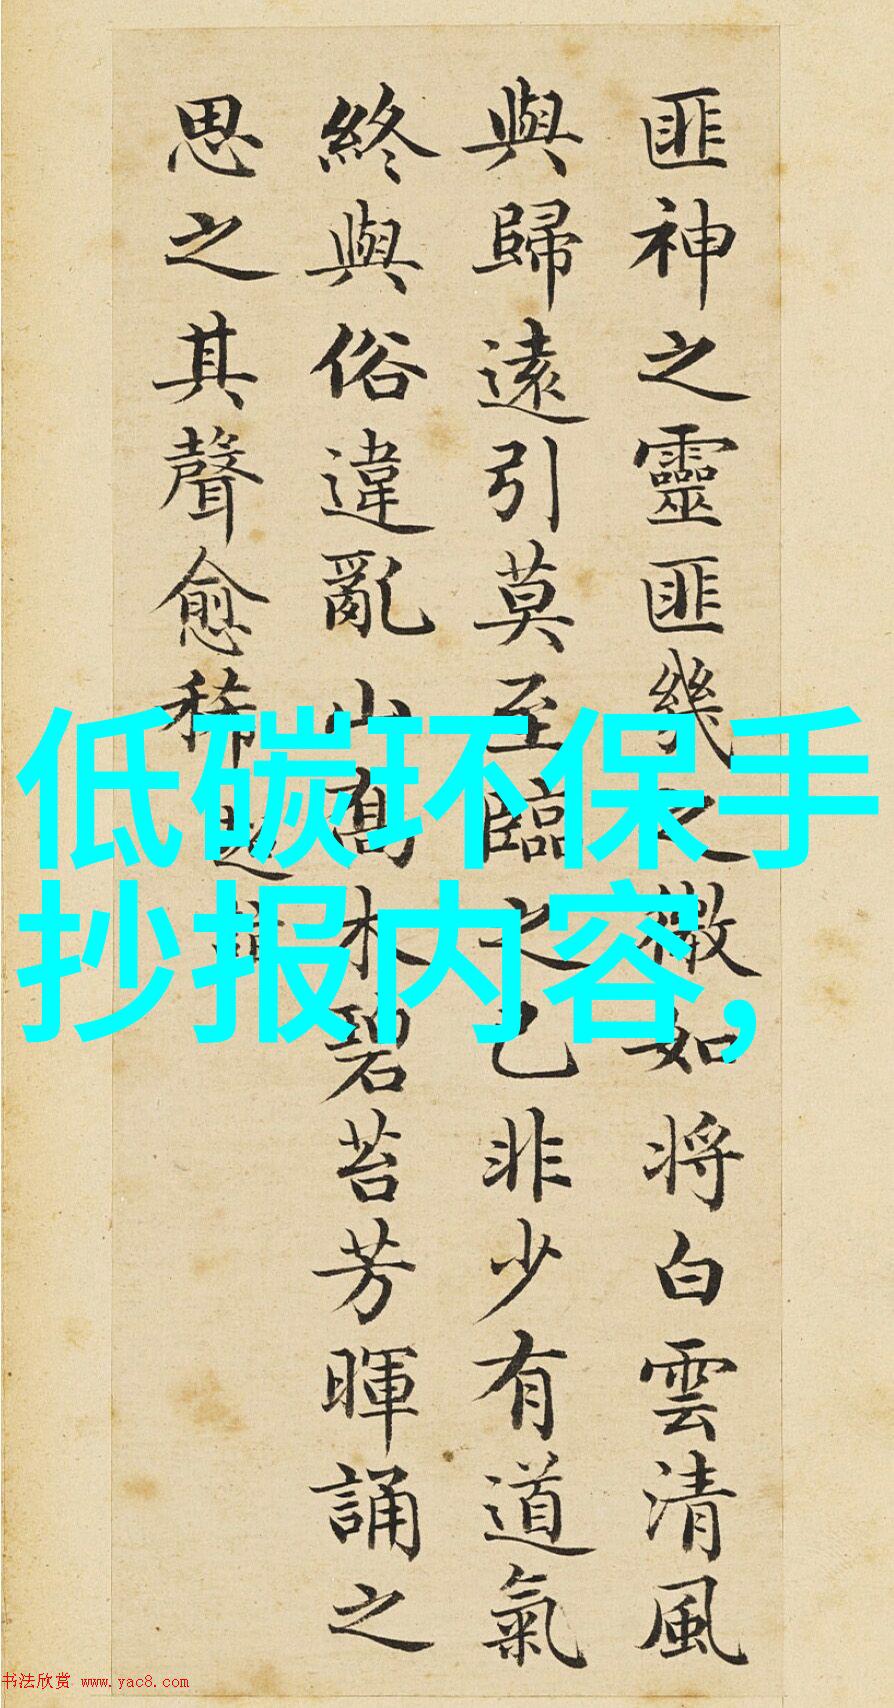 匪神之靈匪幾之微如将白雲清風
與歸遠引莫至臨之已非少有道氣
終與俗違亂山高木碧苔芳暉誦之
思之其聲愈稀
低碳环保手
抄报内容,
书法欣赏 www.yac8.com